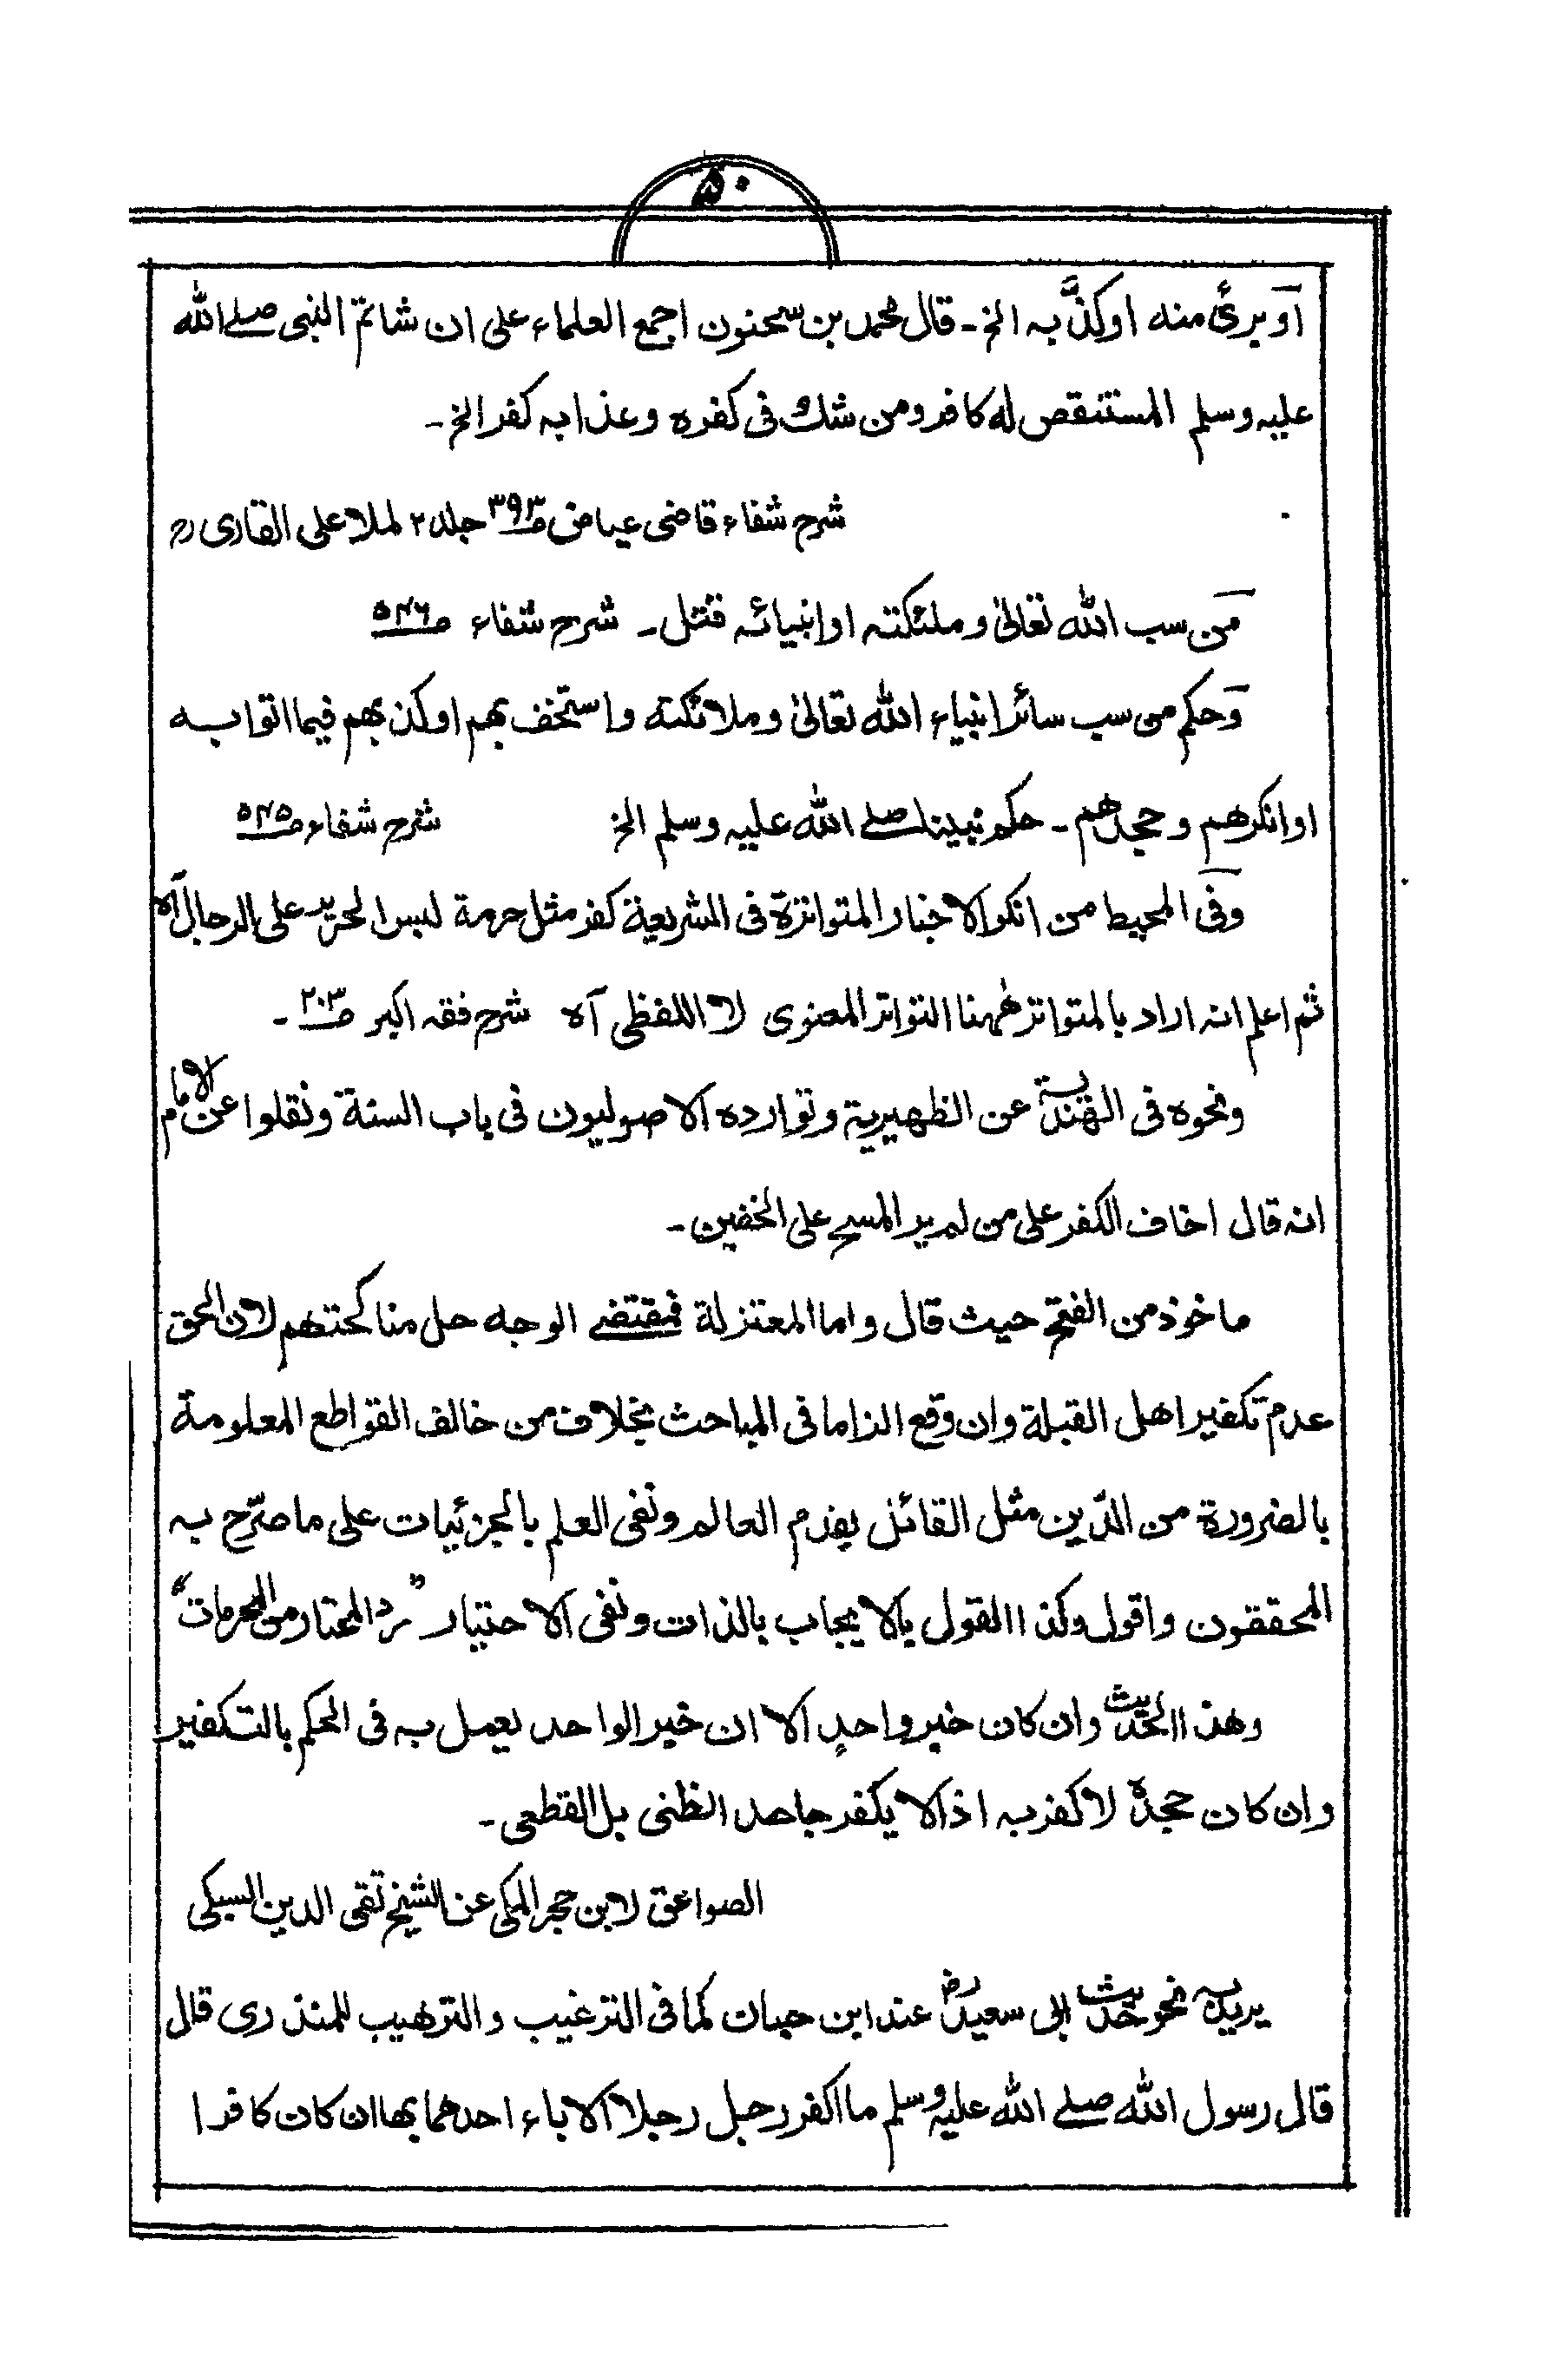 ۵۰
اَو برئ منه او کذَّ به الخ۔ قال محمد بن سحنون اجمع العلماء علی ان شاتم النبی صلے الله
علیه وسلم المستنقص له کافر ومن شك فی کفره وعذابه کفر الخ۔
شرح شفاء قاضی عیاض صـ۳۹۳ جلد ۲ لملا علی القاری رح
مَن سب الله تعالیٰ وملئکته او انبیائه قتل۔ شرح شفاء صـ۵۴۶
وَحکم من سب سائر انبیاء الله تعالیٰ وملائکته واستخف بهم او کذ بهم فیما اتوا به
او انکرهم وجحدهم۔ حکم نبینا صلے الله علیه وسلم الخ شرح شفاء صـ۵۴۵
وَفی المحیط من انکر الاخبار المتواترة فی الشریعة کفر مثل حرمة لبس الحریر علی الرجال آه
ثم اعلم انه اراد بالمتواتر ههنا التواتر المعنوی لا اللفظی آه شرح فقه اکبر صـ۲۰۳۔
ونحوه فی الهندیة عن الظهیریة وتوارده الاصولیون فی باب السنة ونقلوا عن الامام
انه قال اخاف الکفر علی من لم یر المسح علی الخفین۔
ماخوذ من الفتح حیث قال واما المعتزلة فمقتضے الوجه حل مناکحتهم لان الحق
عدم تکفیر اهل القبلة وان وقع الزاما فی المباحث بخلاف من خالف القواطع المعلومة
بالضرورة من الدّین مثل القائل بقدم العالم ونفی العلم بالجزئیات علی ما صرّح به
المحققون واقول وکذا القول بالایجاب بالذات ونفی الاختیار "رد المحتار من المحرمات"
وهذا الحدیث وان کان خبر واحدٍ الا ان خبر الواحد یعمل به فی الحکم بالتکفیر
وان کان جحدہ لا کفر به اذ لا یکفر جاحد الظنی بل القطعی۔
الصواعق لابن حجر المکی عن الشیخ تقی الدین السبکی
یرید به نحو حدیث ابی سعیدؓ عند ابن حبان کما فی الترغیب والترهیب للمنذری قال
قال رسول الله صلے الله علیه وسلم ما اکفر رجل رجلا الا باء احدهما بها ان کان کافرا